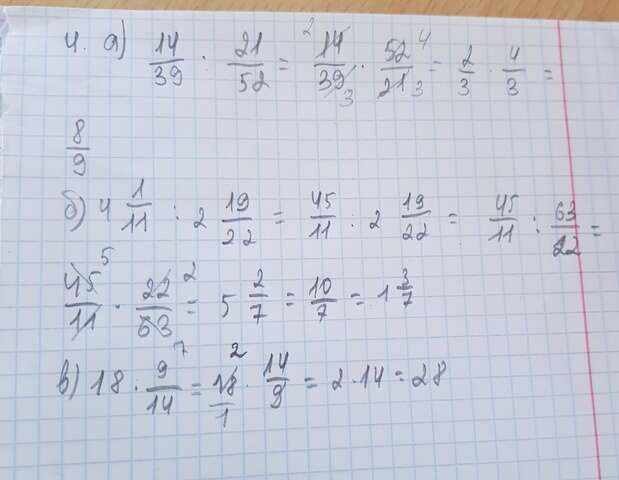 4. а) 14/39 · 21/52 = 14²/39₃ · 52⁴/21₃ = 2/3 · 4/3 =
8/9
б) 4 1/11 : 2 19/22 = 45/11 : 2 19/22 = 45/11 : 63/22 =
45⁵/11 · 22²/63₇ = 5 2/7 = 10/7 = 1 3/7
в) 18 · 9/14 = 18²/1 · 14/9 = 2 · 14 = 28